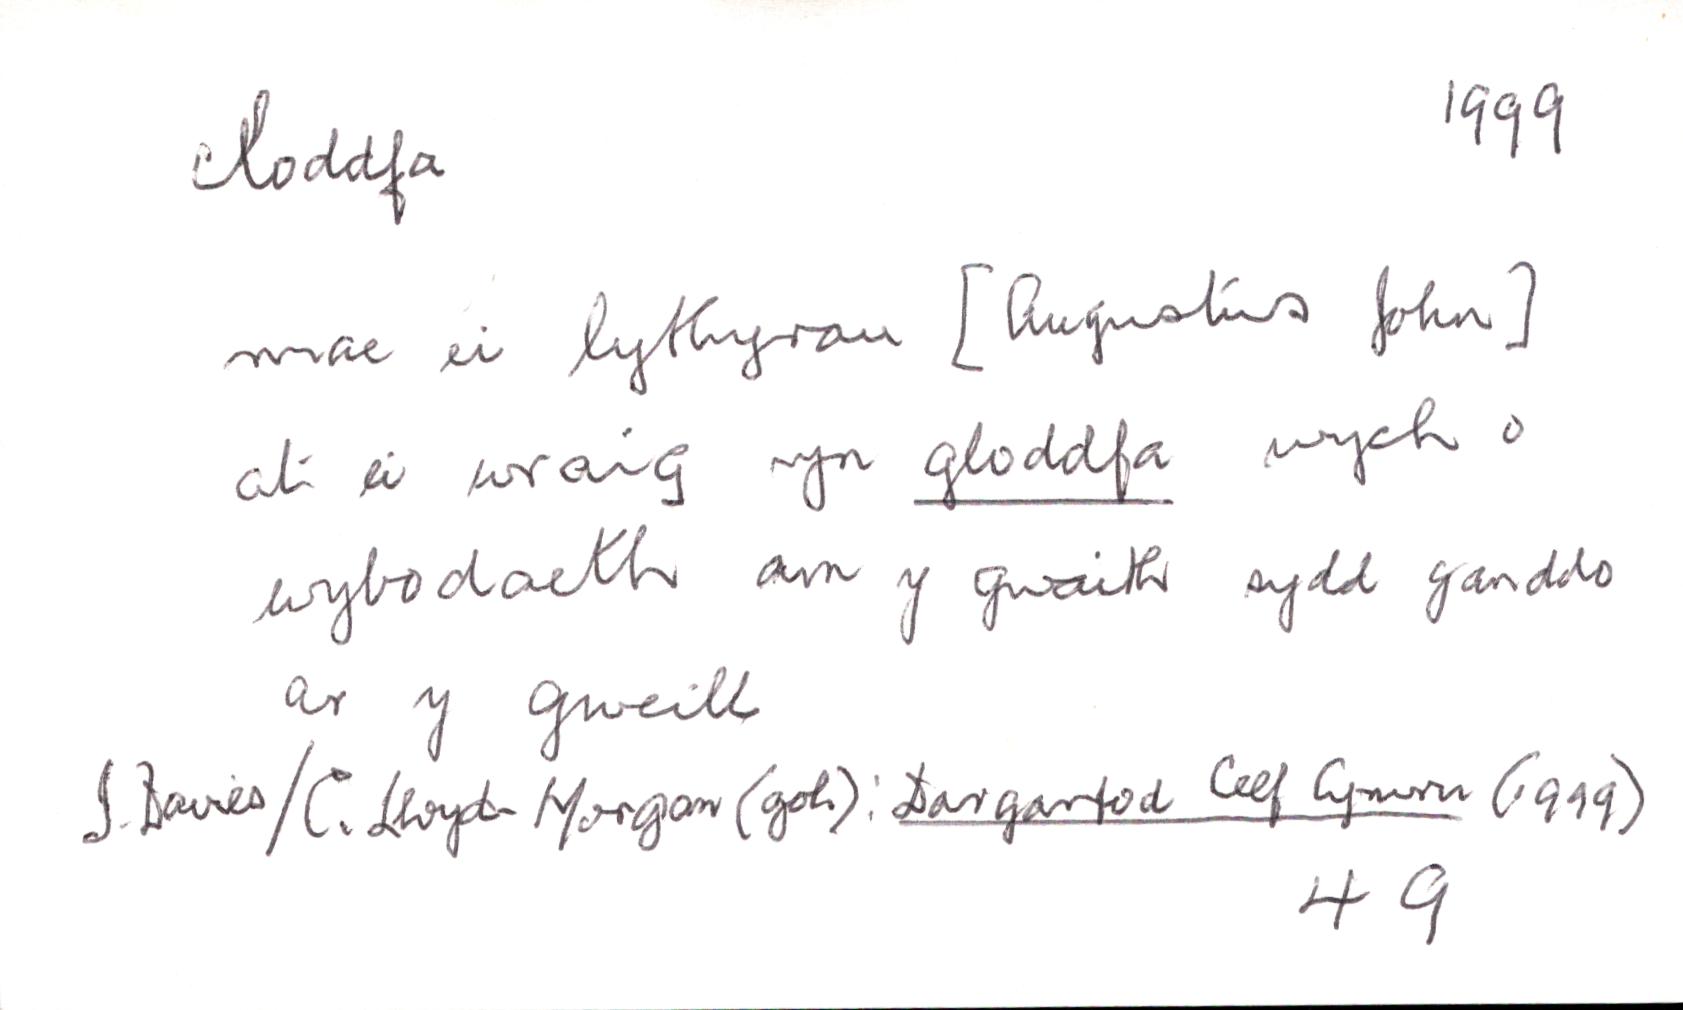 cloddfa 1999
mae ei lythyrau [Augustus John]
at ei wraig yn gloddfa wych o
wybodaeth am y gwaith sydd ganddo
ar y gweill
I. Davies/C. Lloyd-Morgan (goln): Darganfod Celf Cymru (1999)
49